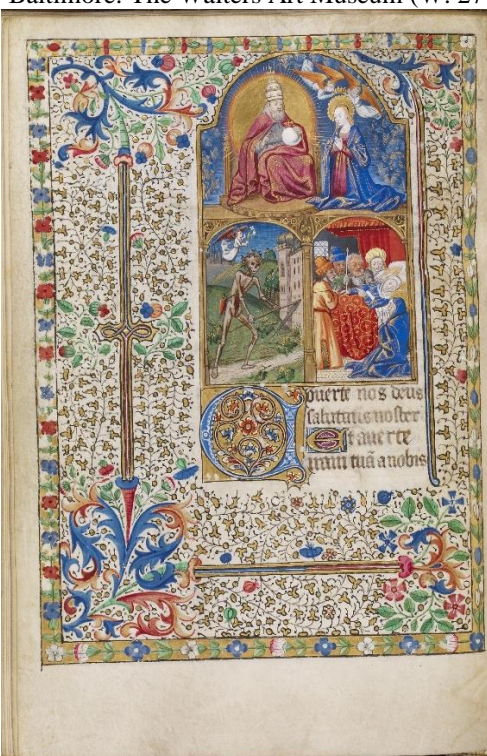 Baltimore. The Walters Art Museum (W. 27
Cōuerte nos deus
salutaris noster
Et auerte
iram tuā a nobis